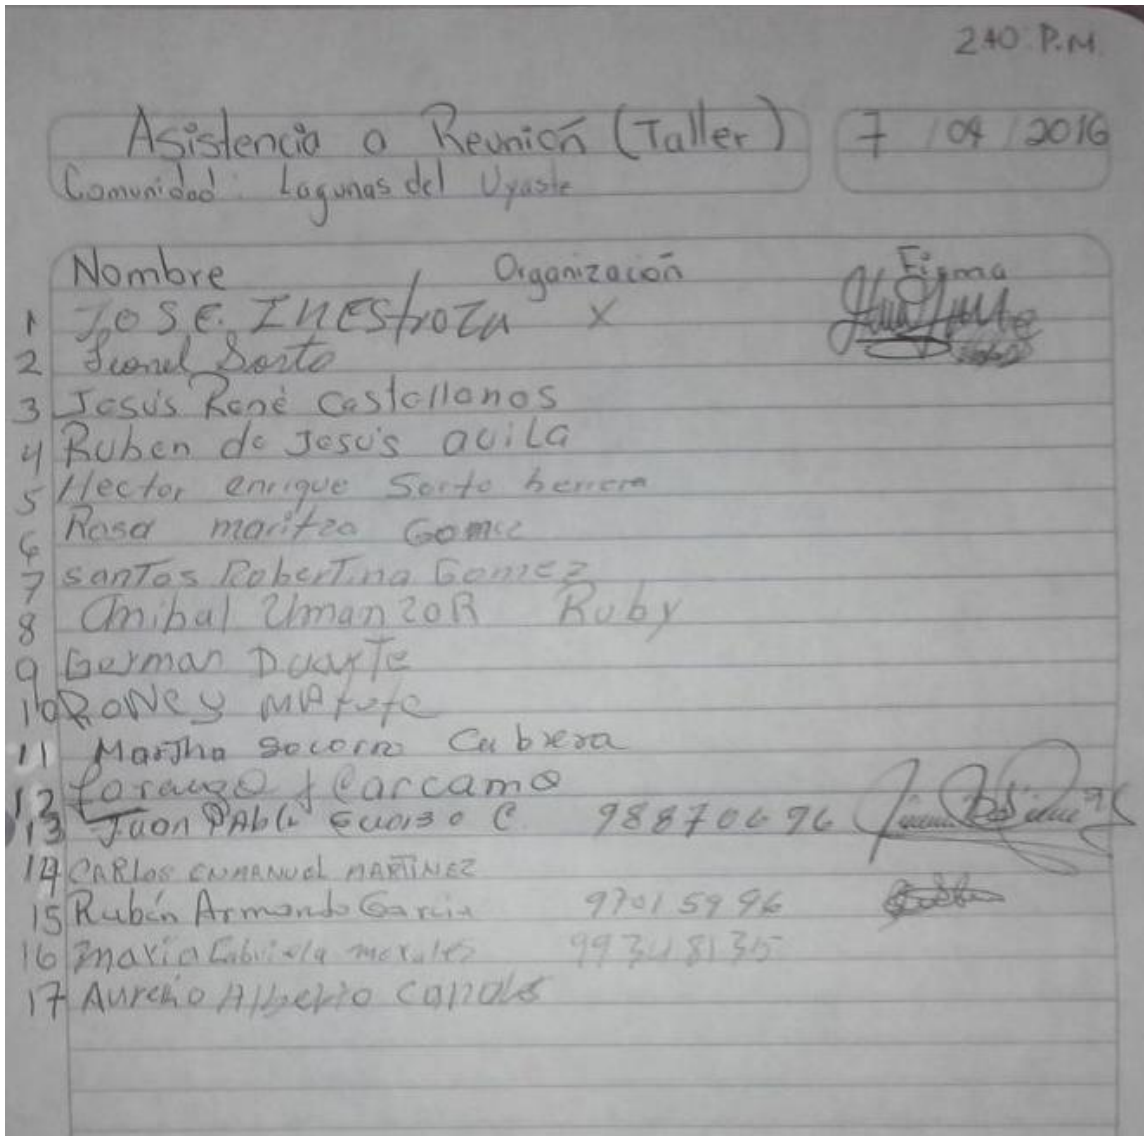 240 P.M.
Asistencia a Reunión (Taller) 7 / 04 / 2016
Comunidad: Lagunas del Uyaste
Nombre Organización Firma
1 JOSE. INEStroza X
2 Leonel Sorto
3 Jesús René Castellanos
4 Ruben de Jesús avila
5 Hector enrique Sorto herrera
6 Rosa maritza Gomez
7 sanTos RoberTina Gomez
8 Anibal UmanzoR Ruby
9 German DuarTe
10 RoNey MAtute
11 Martha Socorro Cabrera
12 Carcamo
13 Juan PAblo C. 98870696
14 CARlos ENMANUel MARTINEZ
15 Rubén Armando Garcia 97015996
16 maria Gabriela morales 99348135
17 Aurelio Alberto canales